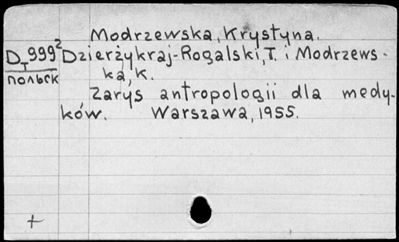 Modrzewska, Krystyna.
D₁999² Dzierżykraj-Rogalski, T. i Modrzews-
польск ka, K.
Zarys antropologii dla medy-
ków. Warszawa, 1955.
+